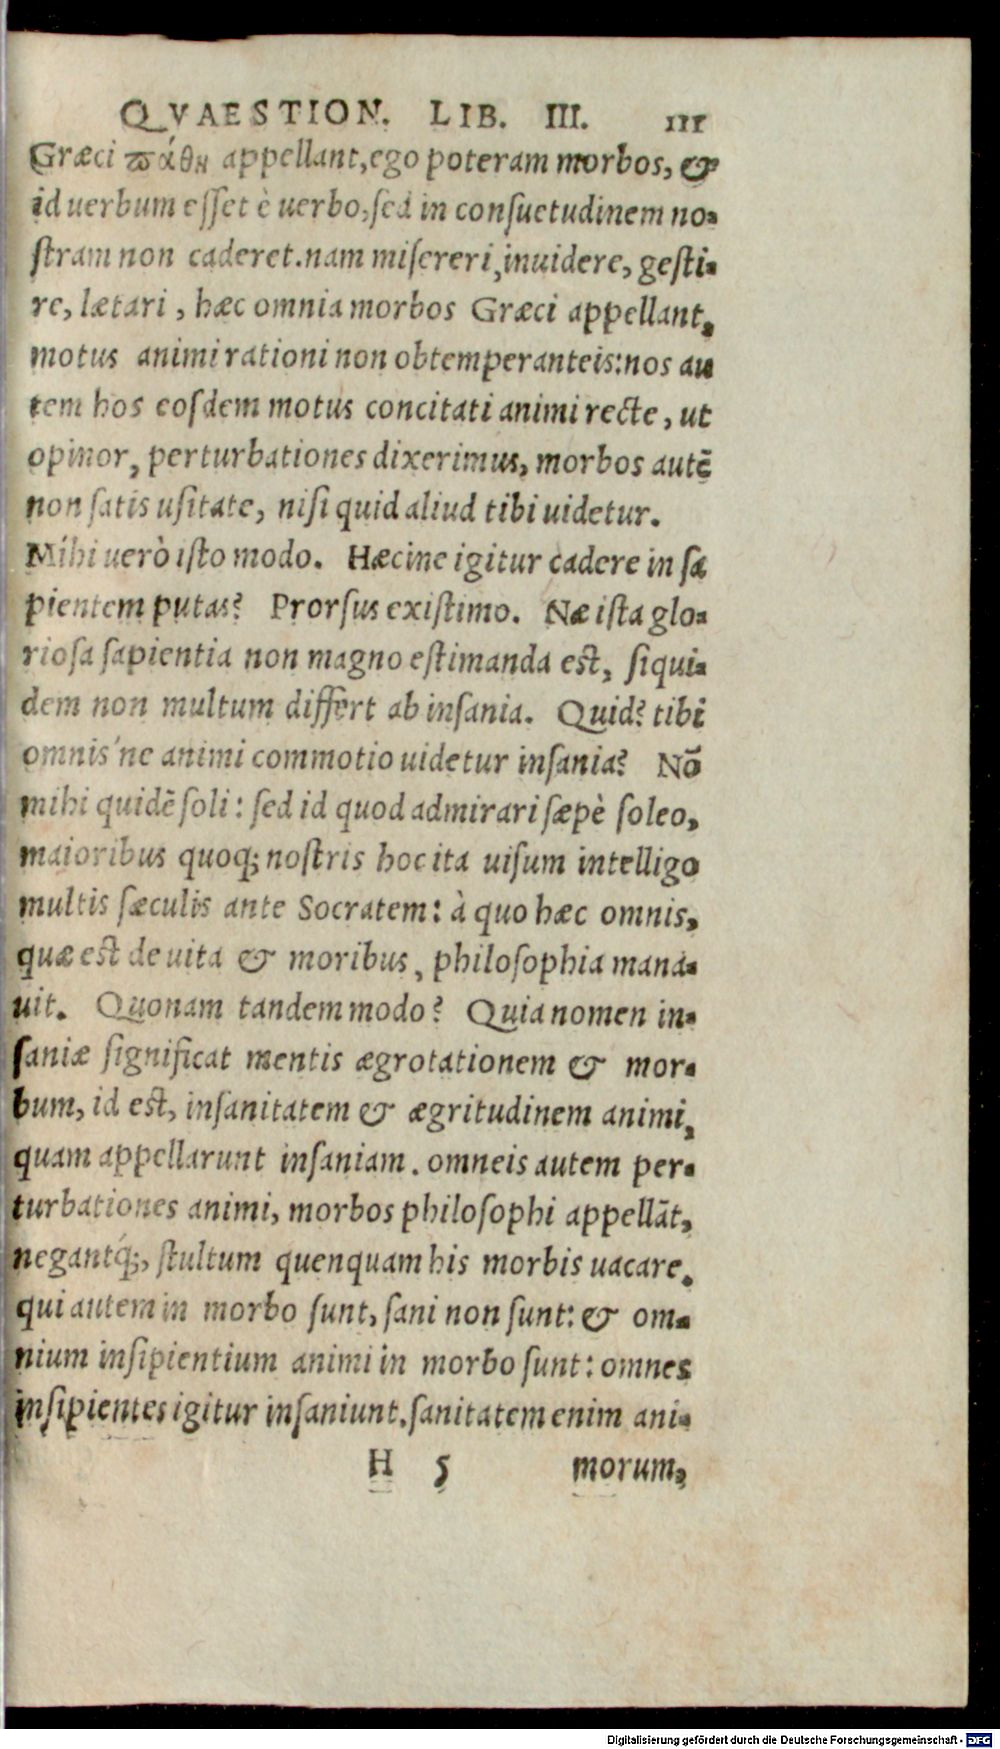 QVAESTION. LIB. III. 111
Græci ϖάθη appellant, ego poteram morbos, &
id uerbum esset è uerbo, sed in consuetudinem no-
stram non caderet. nam misereri, inuidere, gesti-
re, lætari, hæc omnia morbos Græci appellant,
motus animi rationi non obtemperanteis: nos au
tem hos eosdem motus concitati animi recte, ut
opinor, perturbationes dixerimus, morbos autē
non satis usitate, nisi quid aliud tibi uidetur.
Mihi uerò isto modo. Hæcine igitur cadere in sa
pientem putas? Prorsus existimo. Næ ista glo-
riosa sapientia non magno estimanda est, siqui-
dem non multum differt ab insania. Quid? tibi
omnis'ne animi commotio uidetur insania? Nō
mihi quidē soli: sed id quod admirari sæpè soleo,
maioribus quoq; nostris hoc ita uisum intelligo
multis sæculis ante Socratem: à quo hæc omnis,
quæ est de uita & moribus, philosophia mana-
uit. Quonam tandem modo? Quia nomen in-
saniæ significat mentis ægrotationem & mor-
bum, id est, insanitatem & ægritudinem animi,
quam appellarunt insaniam. omneis autem per-
turbationes animi, morbos philosophi appellāt,
negantq́;, stultum quenquam his morbis uacare.
qui autem in morbo sunt, sani non sunt: & om-
nium insipientium animi in morbo sunt: omnes
insipientes igitur insaniunt. sanitatem enim ani-
H 5 morum,
Digitalisierung gefördert durch die Deutsche Forschungsgemeinschaft - DFG